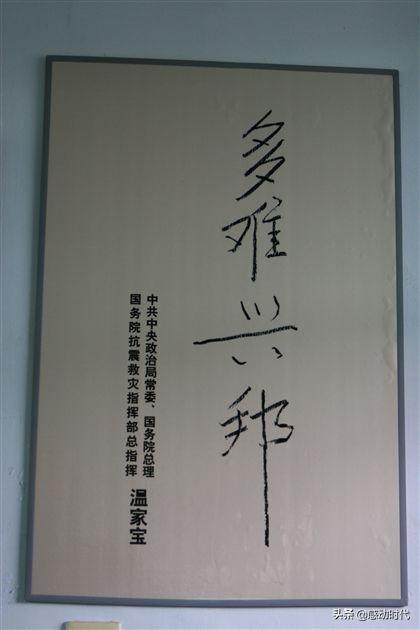 多难兴邦
中共中央政治局常委、国务院总理
国务院抗震救灾指挥部总指挥 温家宝
头条@感动时代